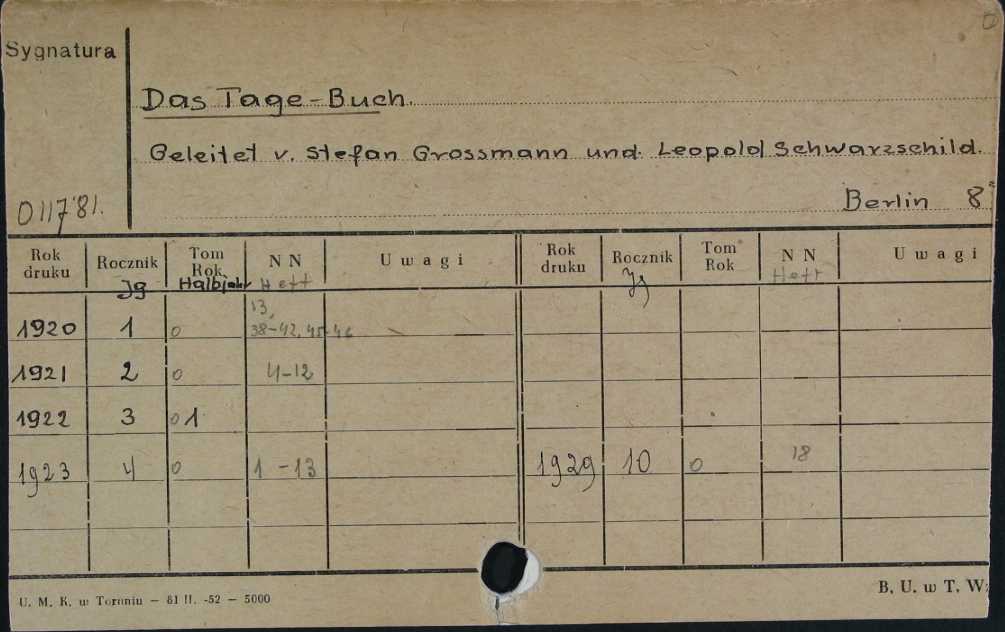 0
Sygnatura
Das Tage-Buch.
Geleitet v. Stefan Grossmann und Leopold Schwarzschild.
011781.
Berlin 8°
Rok druku Rocznik Tom Rok N N Uwagi Rok druku Rocznik Tom Rok N N Uwagi
Jg Halbjahr Heft Jg Heft
13,
1920 1 0 38-42, 45-46
1921 2 0 4-12
1922 3 0 1
1923 4 0 1-13 1929 10 0 18
U. M. K. w Toruniu — 81 II. -52 — 5000
B. U. w T. W: